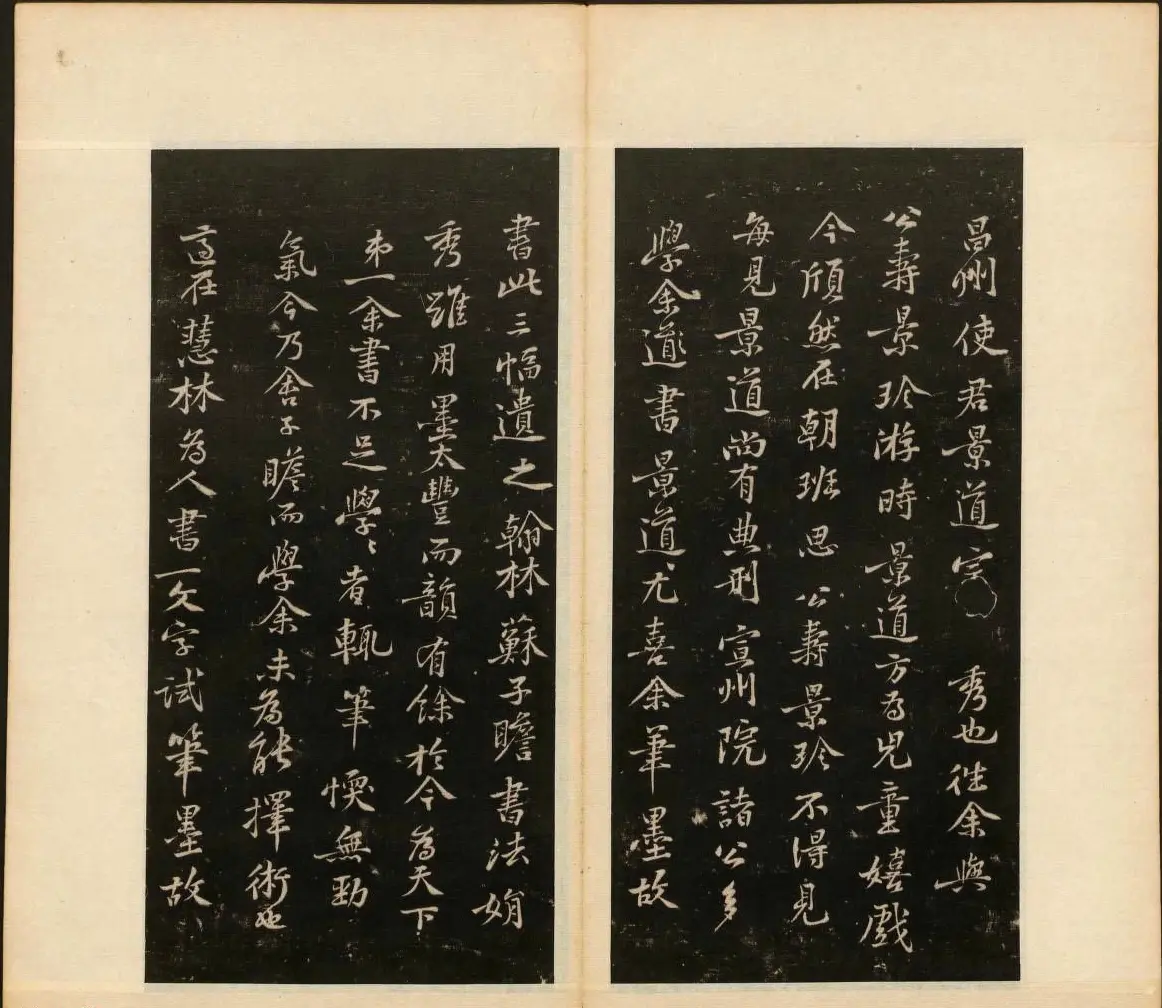 昌州使君景道宗秀也往余與
公壽景珍游時景道方為兒童嬉戲
今頎然在朝班思公壽景珍不得見
每見景道尚有典刑宣州院諸公多
學余道書景道尤喜余筆墨故
書此三幅遺之翰林蘇子瞻書法娟
秀雖用墨太豐而韻有餘於今為天下
第一余書不足學學者輒筆愞無勁
氣今乃舍子瞻而學余未為能擇術也
適在慧林為人書一文字試筆墨故